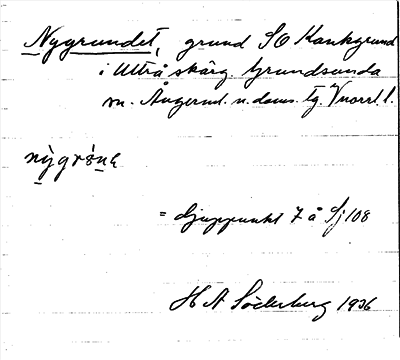 Nygrundet, grund SO Kankgrund
i Ulträ skärg. Grundsunda
sn. Ångerml. n. doms. tg. Vnorrl. l.
= djuppunkt 7 å Sj 108
H A Söderberg 1936